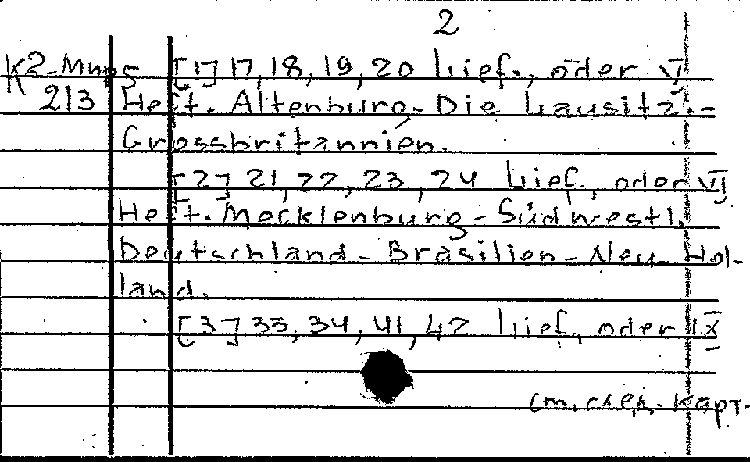 2
К2-Мир5 [1] 17, 18, 19, 20 Lief., oder V
213 Heft. Altenburg.-Die Lausitz.-
Grossbritannien.
[2] 21, 22, 23, 24 Lief., oder VI
Heft. Mecklenburg-Südwestl.
Deutschland-Brasilien-Neu-Hol-
land.
[3] 33, 34, 41, 42 Lief., oder IX
см. след. карт.